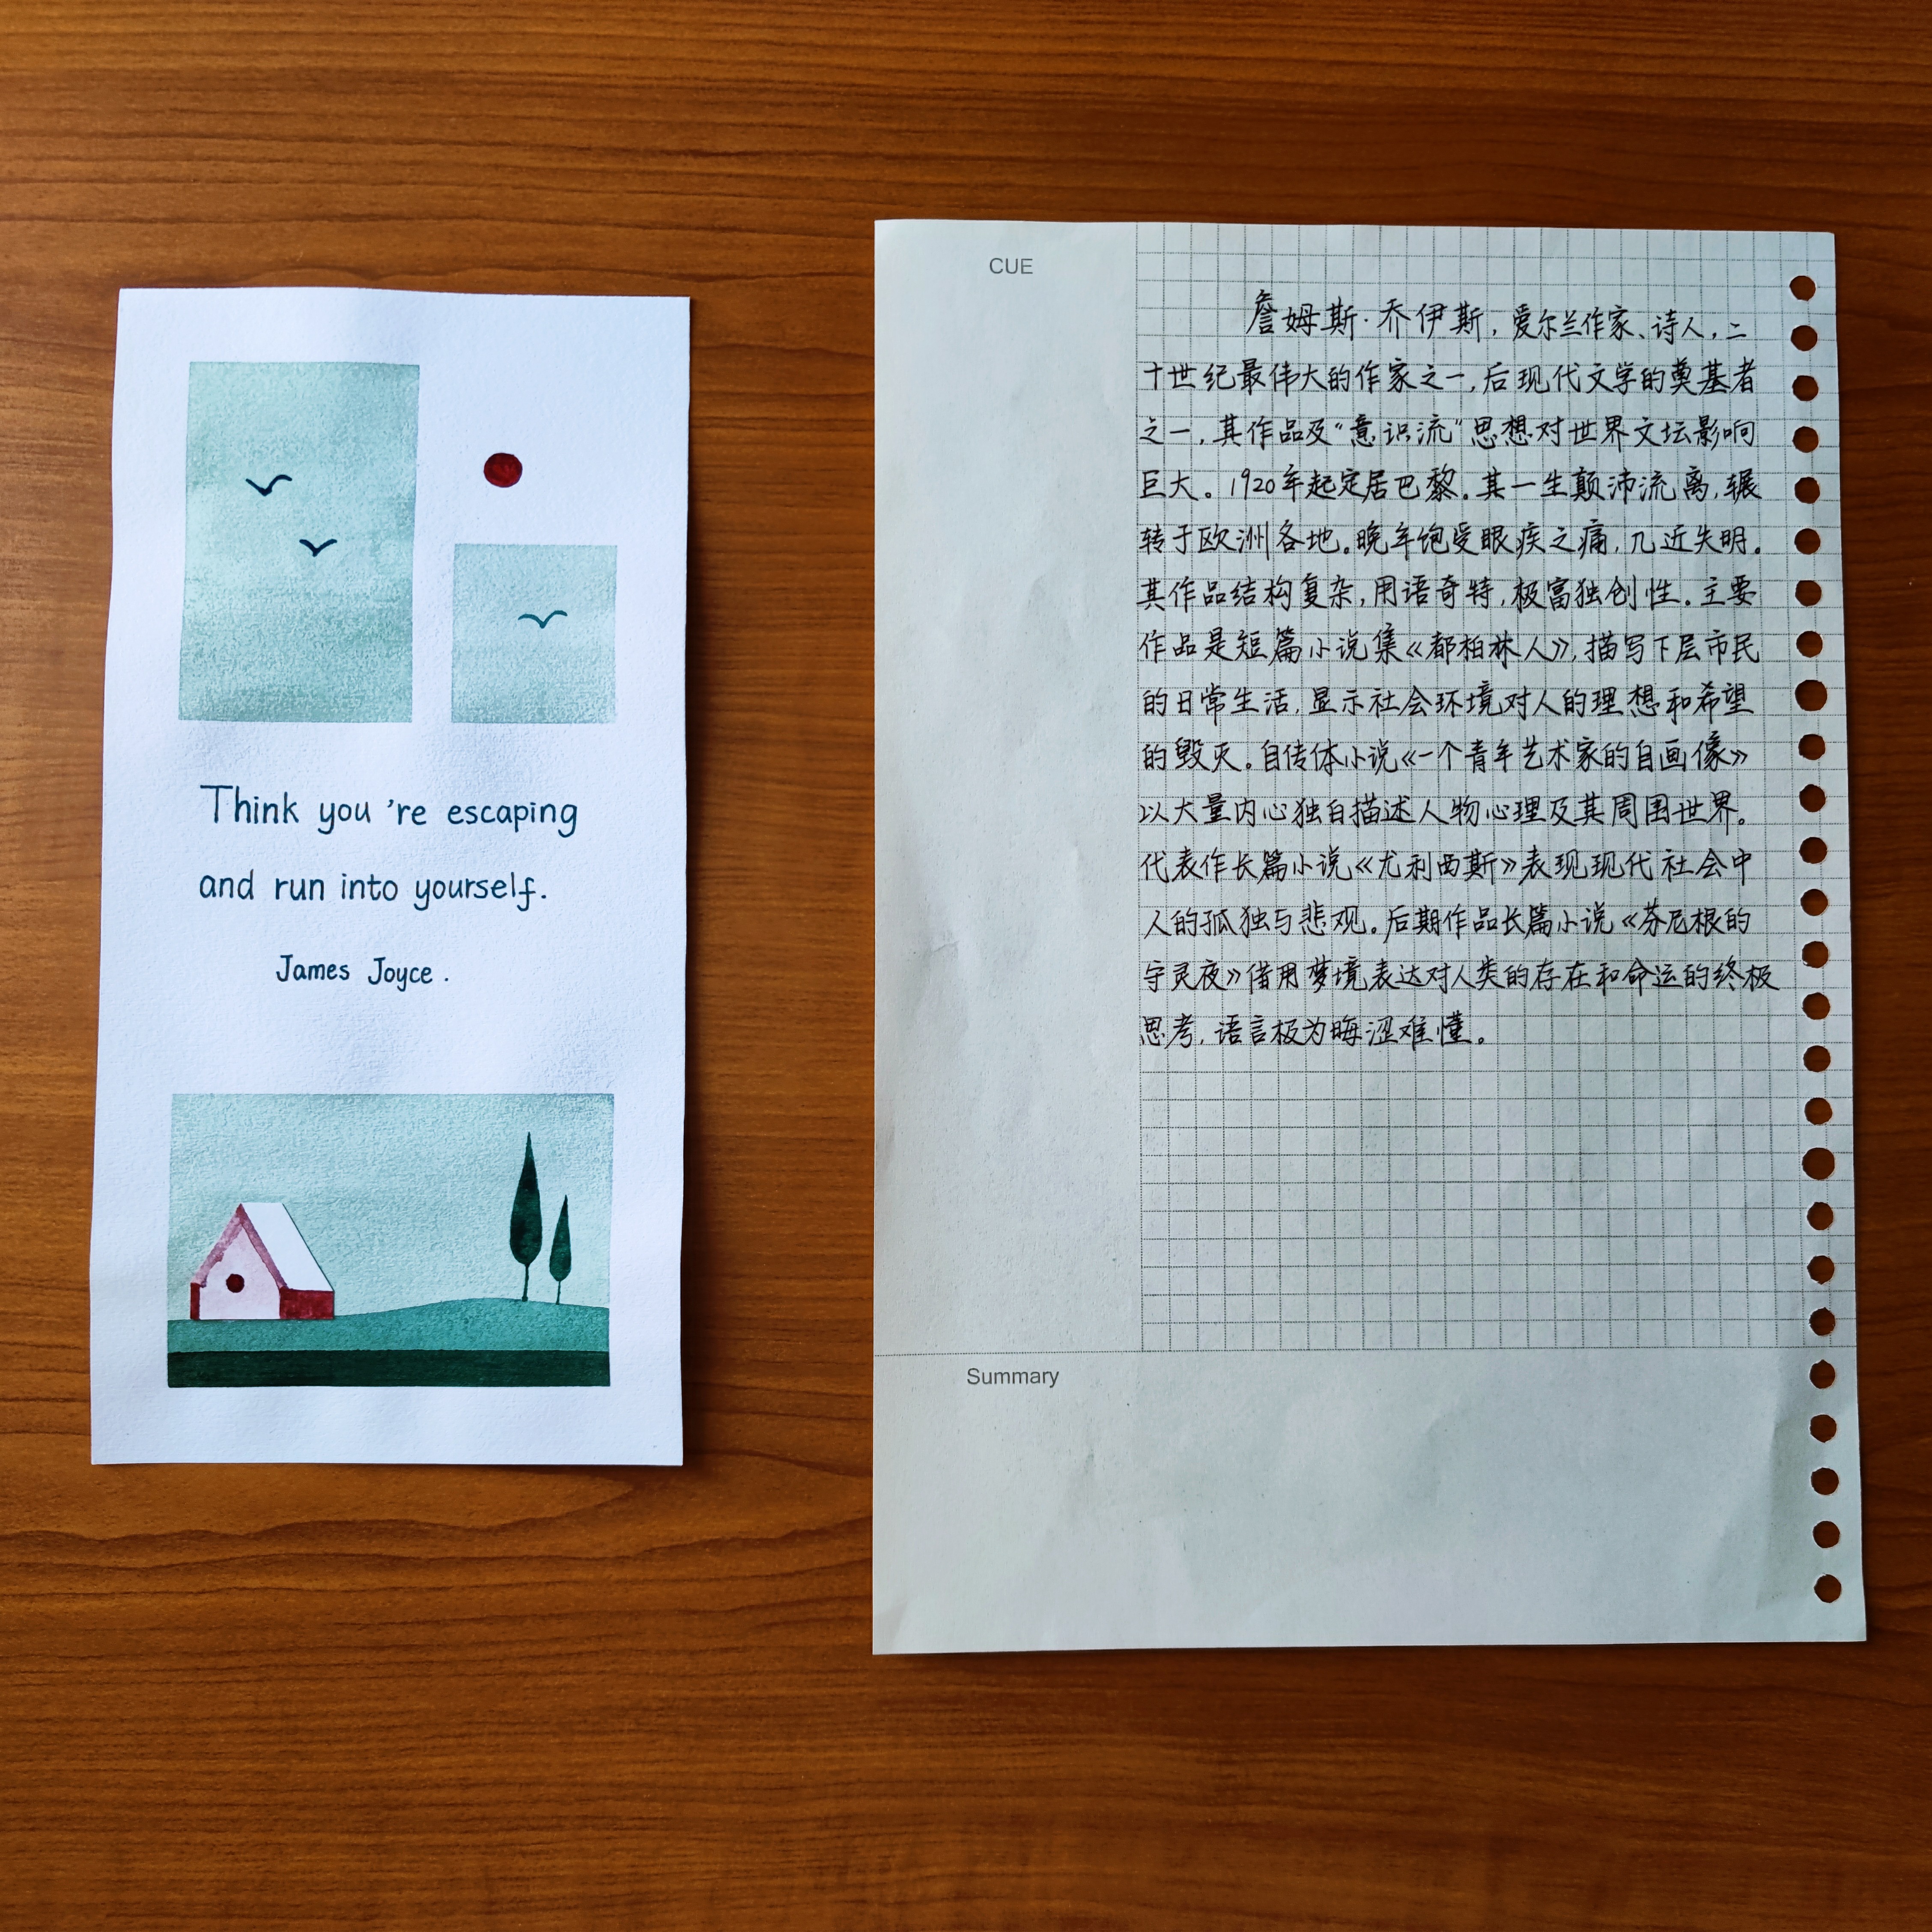 Think you 're escaping
and run into yourself.
James Joyce .
CUE
詹姆斯·乔伊斯，爱尔兰作家、诗人，二
十世纪最伟大的作家之一，后现代文学的奠基者
之一，其作品及“意识流”思想对世界文坛影响
巨大。1920年起定居巴黎。其一生颠沛流离，辗
转于欧洲各地。晚年饱受眼疾之痛，几近失明。
其作品结构复杂，用语奇特，极富独创性。主要
作品是短篇小说集《都柏林人》，描写下层市民
的日常生活，显示社会环境对人的理想和希望
的毁灭。自传体小说《一个青年艺术家的自画像》
以大量内心独白描述人物心理及其周围世界。
代表作长篇小说《尤利西斯》表现现代社会中
人的孤独与悲观。后期作品长篇小说《芬尼根的
守灵夜》借用梦境表达对人类的存在和命运的终极
思考，语言极为晦涩难懂。
Summary